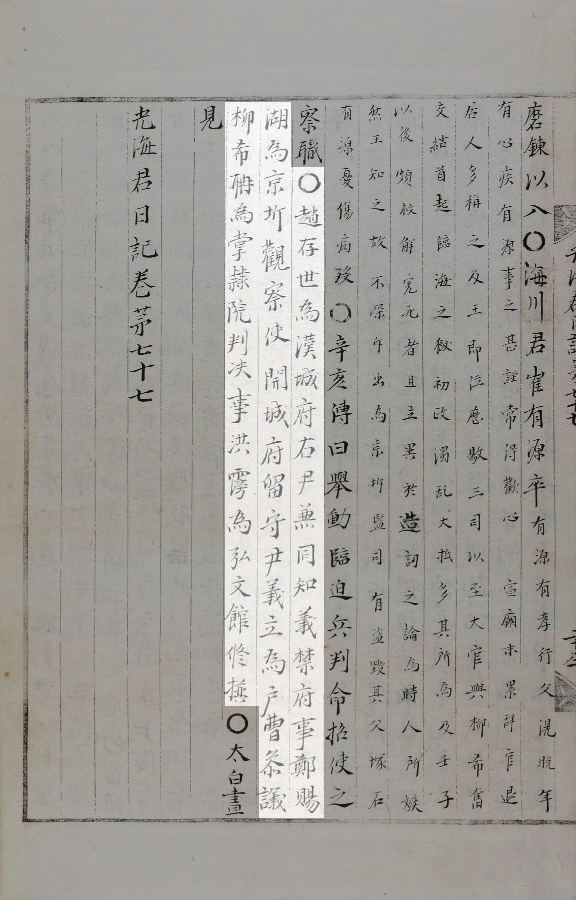 磨鍊以入〇海川君崔有源卒有源有孝行父滉晚年
有心疾有源事之甚謹常得歡心宣廟末累辭官退
居人多稱之及王即位應敭三司以至大官與柳希奮
交結首起臨海之獄初政濁亂大抵多其所為及壬子
以後頗救解冤死者且立異於造訶之論為時人所嫉
然王知之故不深斥出為京圻監司有盜毀其父塚石
有源憂傷病歿〇辛亥傳曰舉動臨迫兵判命招使之
察職〇趙存世為漢城府右尹兼同知義禁府事鄭賜
湖為京圻觀察使開城府留守尹義立為戶曹叅議
柳希聃為掌隷院判决事洪霶為弘文館修撰〇太白晝
見
光海君日記卷苐七十七